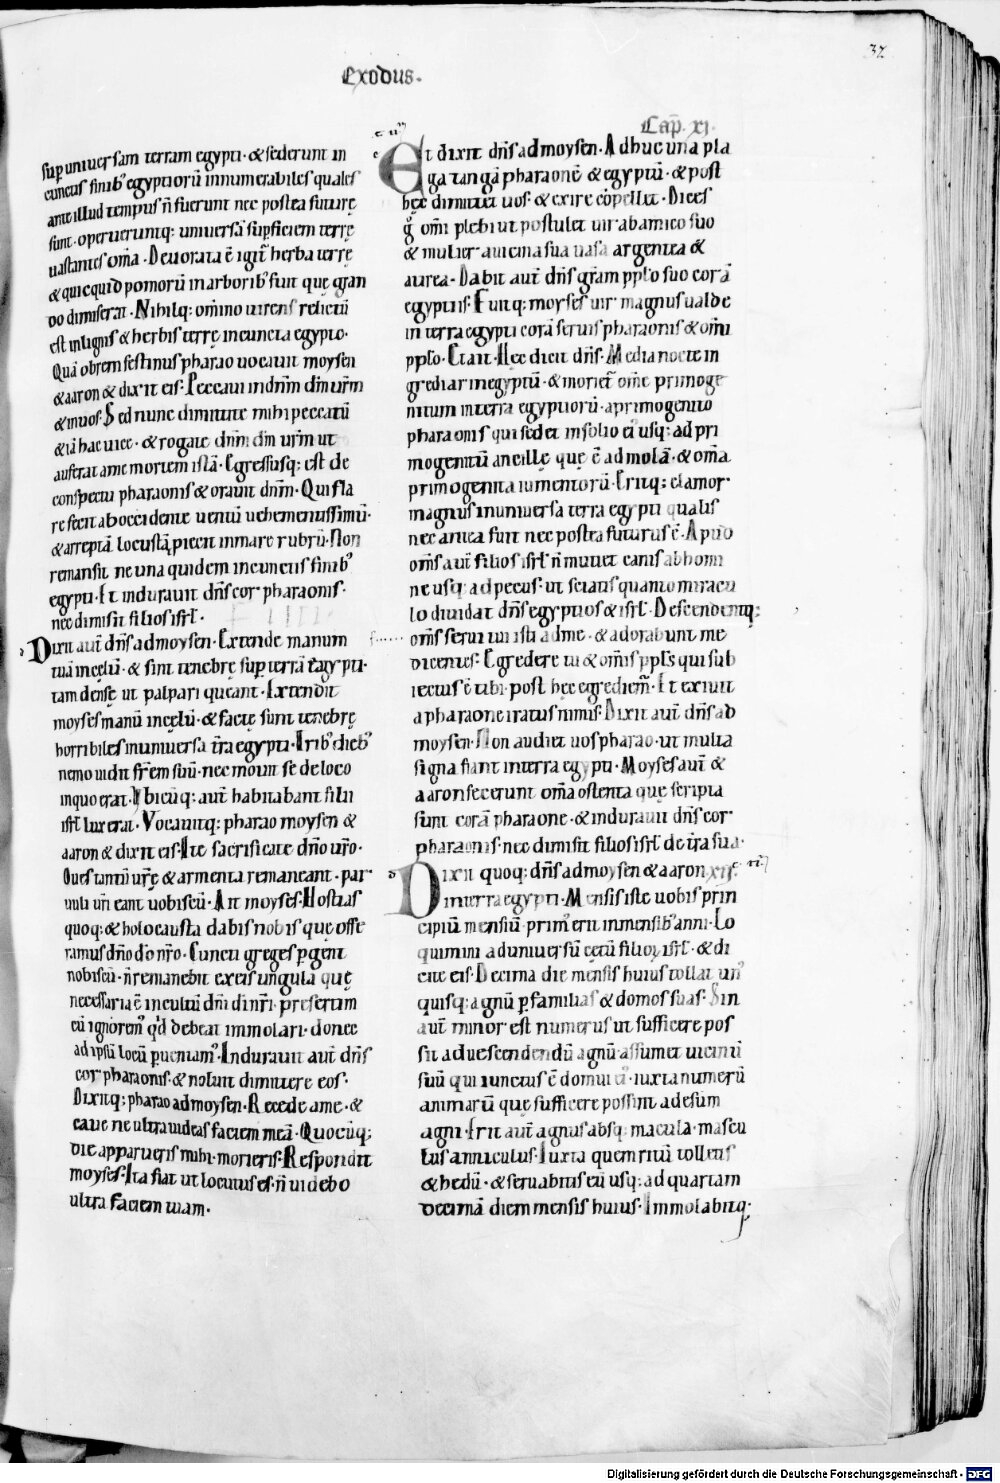 37
Exodus.
sup uniuersam terram egypti. & sederunt in
cunctis finib' egyptiorū innumerabiles quales
ante illud tempus ñ fuerunt nec postea future
sunt. operueruntq; uniuersā supficiem terrę
uastantes om̄a. Deuorata ē igit̄ herba terrę
& quicquid pomorū in arborib' fuit que gran
do dimiserat. Nihilq; om̄ino uirens relictū
est in lignis & herbis terrę in cuncta egypto.
Quā obrem festinus pharao uocauit moysen
& aaron & dixit eis. Peccaui in dn̄m dm̄ ur̄m
& in uos. Sed nunc dimittite mihi peccatū
& iā hac uice. & rogate dn̄m dm̄ ur̄m ut
auferat a me mortem istā. Egressusq; est de
conspectu pharaonis & orauit dn̄m. Qui fla
re fecit ab occidente uentū uehementissimū.
& arreptā locustā piecit in mare rubrū. Non
remansit ne una quidem in cunctis finib'
egypti. Et indurauit dn̄s cor pharaonis.
nec dimisit filios isrl.
Dixit aut̄ dn̄s ad moysen. Extende manum
tuā in cęlū. & sint tenebrę sup terrā egypti.
tam dense ut palpari queant. Extendit
moyses manū in cęlū. & facte sunt tenebrę
horribiles in uniuersa tr̄a egypti. Trib' dieb'
nemo uidit fr̄em suū. nec mouit se de loco
in quo erat. Vbicūq; aut̄ habitabant filii
isrl lux erat. Vocauitq; pharao moysen &
aaron & dixit eis. Ite sacrificate dn̄o ur̄o.
Oues tantū ur̄ę & armenta remaneant. par
uuli ur̄i eant uobiscū. Ait moyses. Hostias
quoq; & holocausta dabis nobis que offe
ramus dn̄o dō nr̄o. Cuncti greges pgent
nobiscū. ñ remanebit ex eis ungula que
necessaria ē in cultū dn̄i di nr̄i. presertim
cū ignorem' qd debeat immolari. donec
ad ipsū locū pueniam'. Indurauit aut̄ dn̄s
cor pharaonis. & noluit dimittere eos.
Dixitq; pharao ad moysen. Recede a me. &
caue ne ultra uideas faciem meā. Quocūq;
die apparueris mihi. morieris. Respondit
moyses. Ita fiat ut locutus es. ñ uidebo
ultra faciem tuam.
Cap̄. xi.
Et dixit dn̄s ad moysen. Adhuc una pla
ga tangā pharaonē & egyptū. & post
hęc dimittet uos. & exire cōpellet. Dices
g̊ om̄i plebi ut postulet uir ab amico suo
& mulier a uicina sua uasa argentea &
aurea. Dabit aut̄ dn̄s gr̄am pplo suo corā
egyptiis. Fuitq; moyses uir magnus ualde
in terra egypti corā seruis pharaonis & om̄i
pplo. Et ait. Hęc dicit dn̄s. Media nocte in
grediar in egyptū. & moriet̄ om̄e primoge
nitum in terra egyptiorū. a primogenito
pharaonis qui sedet in solio ei' usq; ad pri
mogenitū ancillę que ē ad molā. & om̄a
primogenita iumentorū. Eritq; clamor
magnus in uniuersa terra egypti qualis
nec antea fuit nec postea futurus ē. Apud
om̄s aut̄ filios isrl ñ mutiet canis ab homi
ne usq; ad pecus. ut sciatis quanto miracu
lo diuidat dn̄s egyptios & isrl. Descendentq;
om̄s serui tui isti ad me. & adorabunt me
dicentes. Egredere tu & om̄is ppls qui sub
iectus ē tibi. post hęc egrediem̄. Et exiuit
a pharaone iratus nimis. Dixit aut̄ dn̄s ad
moysen. Non audiet uos pharao. ut multa
signa fiant in terra egypti. Moyses aut̄ &
aaron fecerunt om̄a ostenta que scripta
sunt corā pharaone. & indurauit dn̄s cor
pharaonis. nec dimisit filios isrl de tr̄a sua.
Dixit quoq; dn̄s ad moysen & aaron xii.
in terra egypti. Mensis iste uobis prin
cipiū mensiū. prim' erit in mensib' anni. Lo
quimini ad uniuersū cetū filioꝝ isrl. & di
cite eis. Decima die mensis huius tollat un'
quisq; agnū p familias & domos suas. Sin
aut̄ minor est numerus ut sufficere pos
sit ad uescendendū agnū assumet uicinū
suū qui iunctus ē domui ei'. iuxta numerū
animarū que sufficere possint ad esum
agni. Erit aut̄ agnus absq; macula. mascu
lus anniculus. Iuxta quem ritū tolletis
& hedū. & seruabitis eū usq; ad quartam
decimā diem mensis huius. Immolabitq;
Digitalisierung gefördert durch die Deutsche Forschungsgemeinschaft - DFG